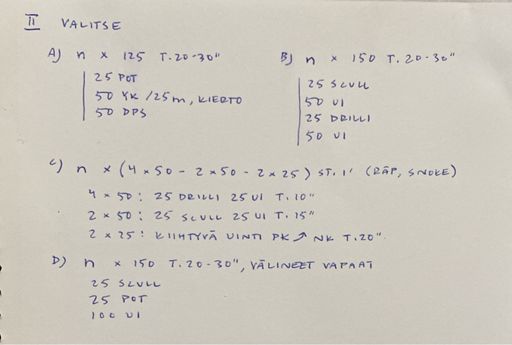 II VALITSE
A) n x 125 T.20-30"
25 POT
50 YK /25m, KIERTO
50 DPS
B) n x 150 T.20-30"
25 SCULL
50 UI
25 DRILLI
50 UI
C) n x (4x50 - 2x50 - 2x25) ST. 1' (RÄP, SNOKE)
4 x 50: 25 DRILLI 25 UI T.10"
2 x 50: 25 SCULL 25 UI T.15"
2 x 25: KIIHTYVÄ UINTI PK ↗ NK T.20"
D) n x 150 T.20-30", VÄLINEET VAPAAT
25 SCULL
25 POT
100 UI